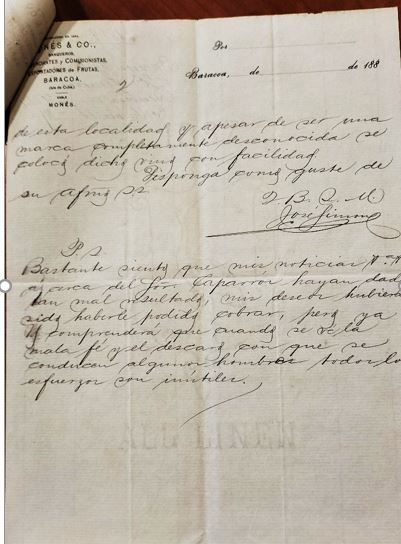 MONÉS & CO.,
BANQUEROS,
COMERCIANTES y COMISIONISTAS,
EXPORTADORES DE FRUTAS,
BARACOA,
(Isla de Cuba.)
CABLE
MONÉS.
Por
Baracoa, de de 188
2
de esta localidad y apesar de ser una
marca completamente desconocida se
colocó dicho con facilidad
Disponga como guste de
su afmo SS
Q. B. S. M.
José Simon
P. S.
Bastante siento que mis noticias
acerca del Sor. Caparror hayan dad
tan mal resultado, mis deseos hubiera
sido haberle podido cobrar, pero ya
V comprenderá que cuando se ve la
mala fé y el descaro con que se
conducen algunos hombres todos lo
esfuerzos son inutiles.